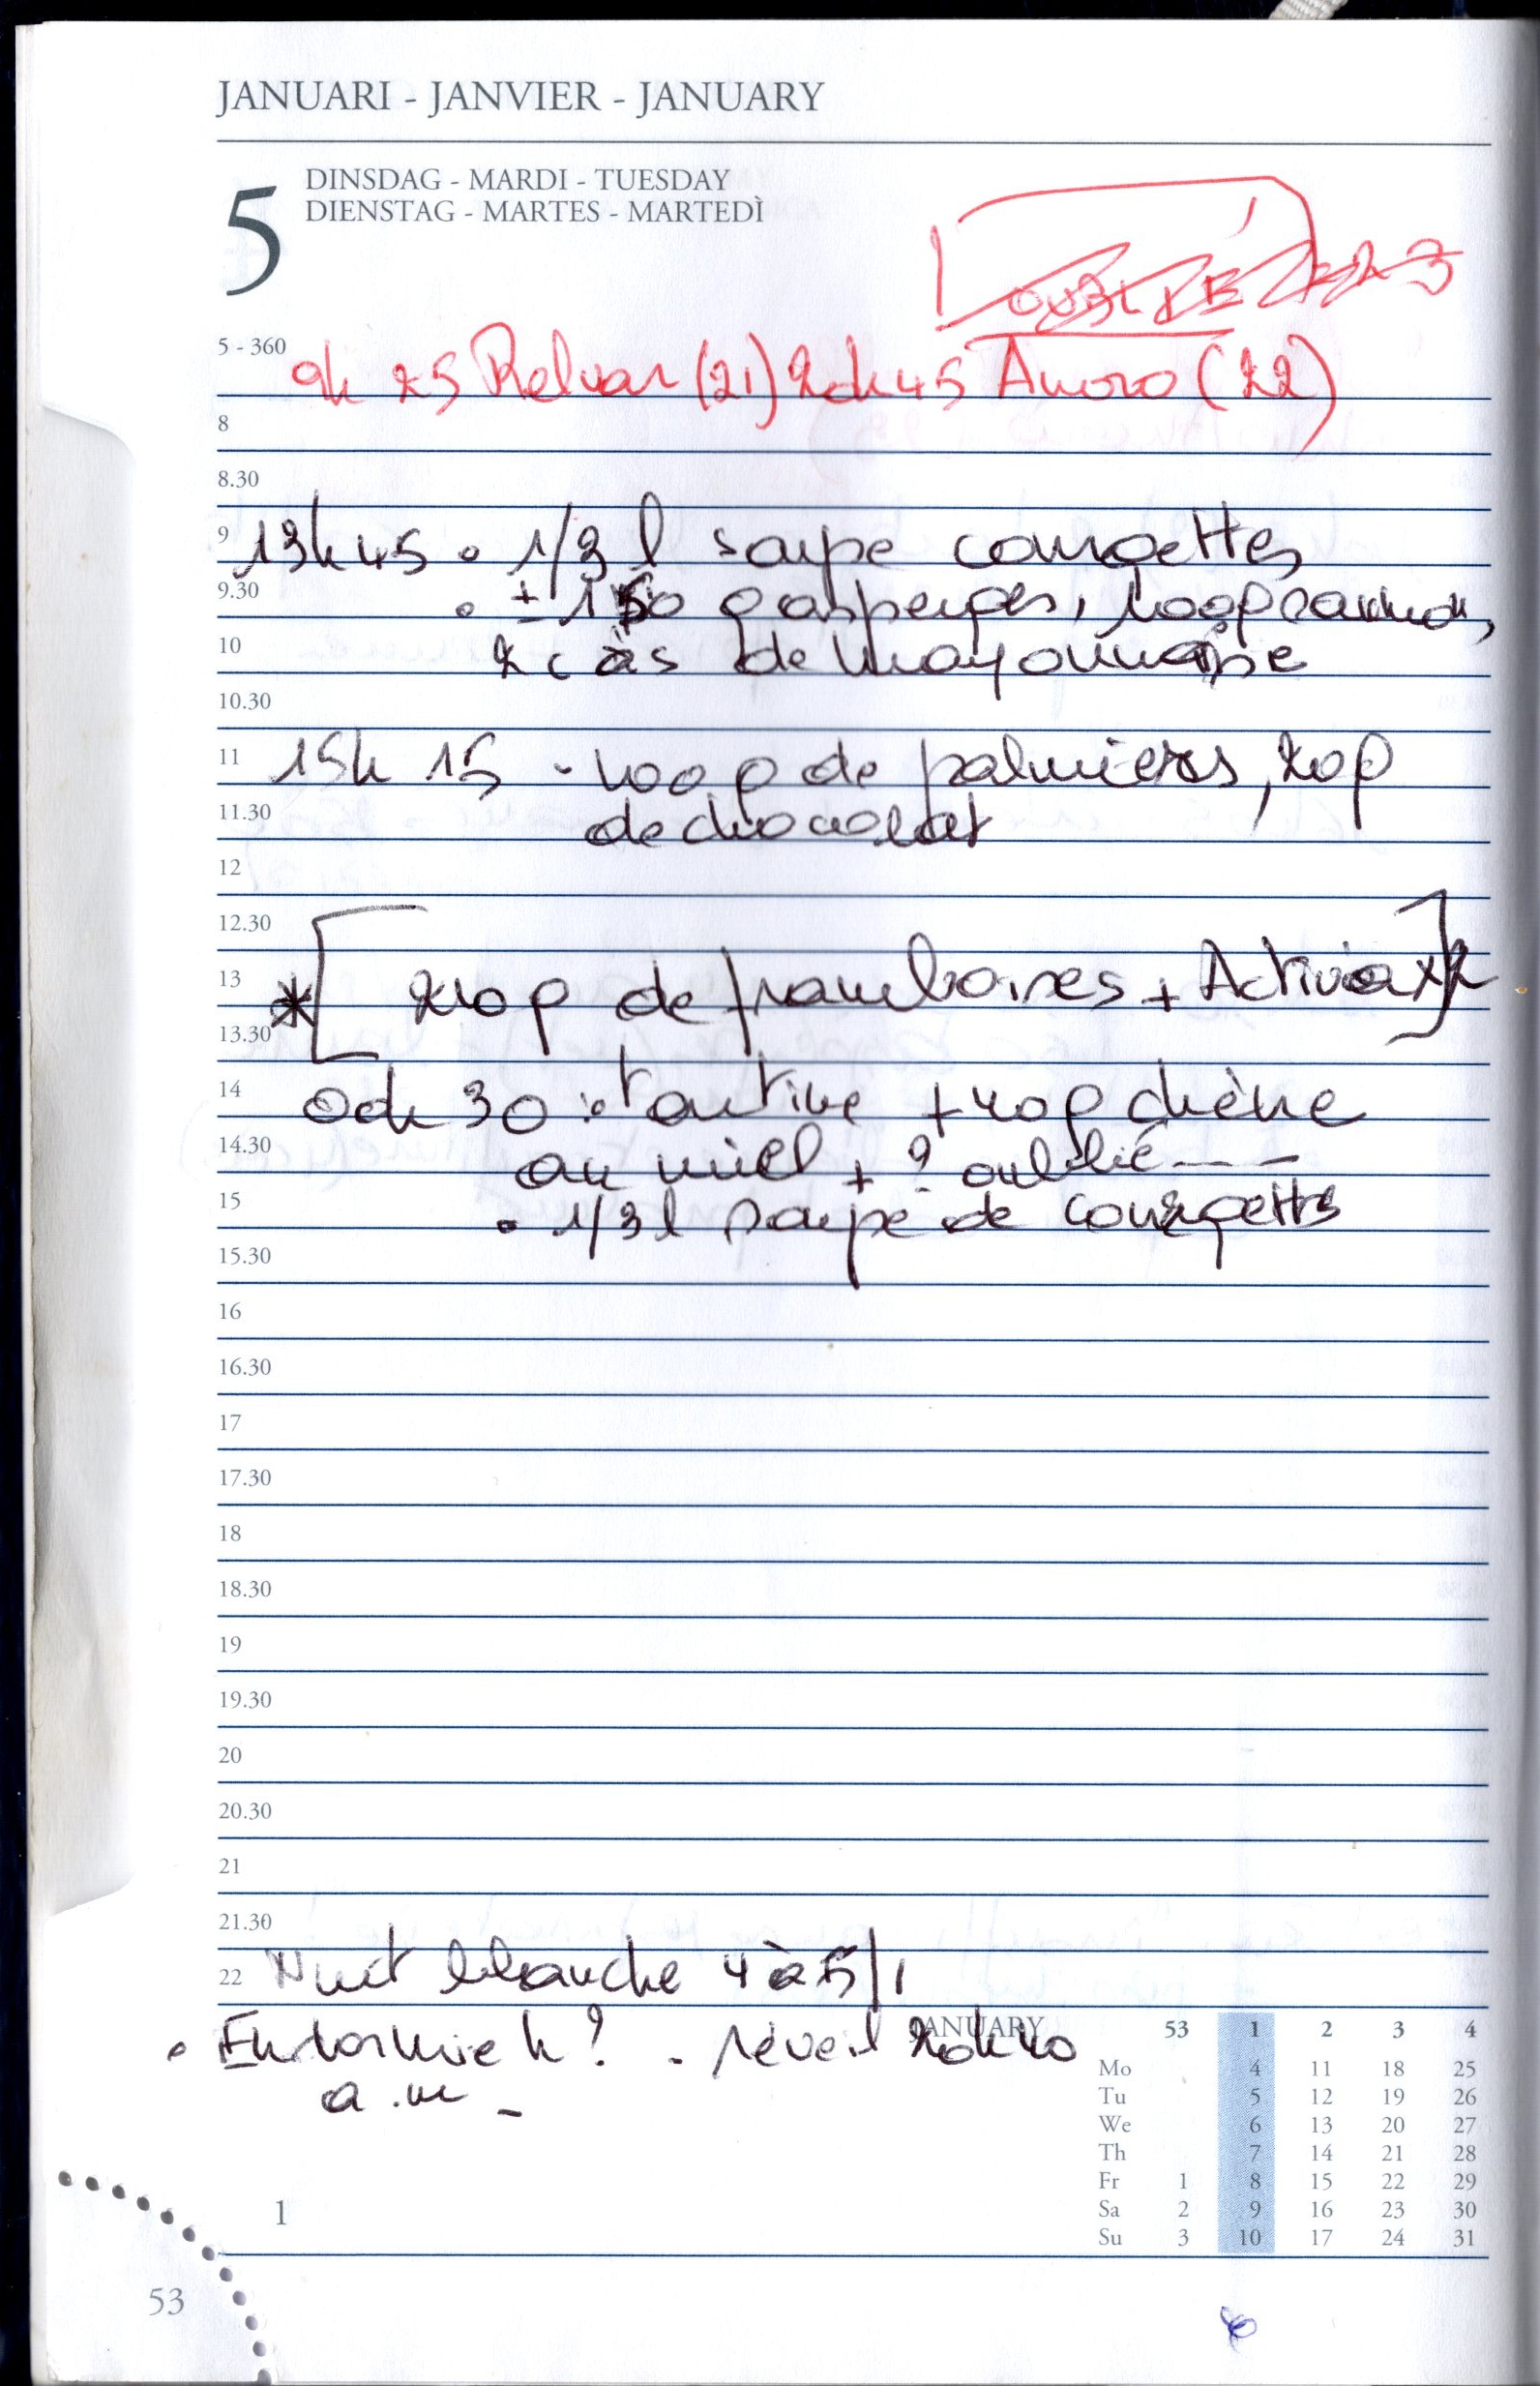 JANUARI - JANVIER - JANUARY
5
DINSDAG - MARDI - TUESDAY
DIENSTAG - MARTES - MARTEDÌ
OUBLIÉ
5 - 360
9h 25 Relvar (21) 20h45 Anoro (22)
8
8.30
9 13h45 • 1/3 l soupe courgettes
9.30 • ± 150 g asperges, 100g
10 2 c à s de mayonnaise
10.30
11 15h 15 - 100 g de palmiers, 20g
11.30 de chocolat
12
12.30
13 * [ 210 g de framboises + Activia x2 ]
13.30
14 0h 30 : • tartine + 40g chèvre
14.30 au miel + ? oublié ---
15 • 1/3 l soupe de courgettes
15.30
16
16.30
17
17.30
18
18.30
19
19.30
20
20.30
21
21.30
22 Nuit blanche 4 à 5/1
• Endormie h ? . réveil 20h40
a.m -
JANUARY 53 1 2 3 4
Mo 4 11 18 25
Tu 5 12 19 26
We 6 13 20 27
Th 7 14 21 28
Fr 1 8 15 22 29
Sa 2 9 16 23 30
Su 3 10 17 24 31
1
53